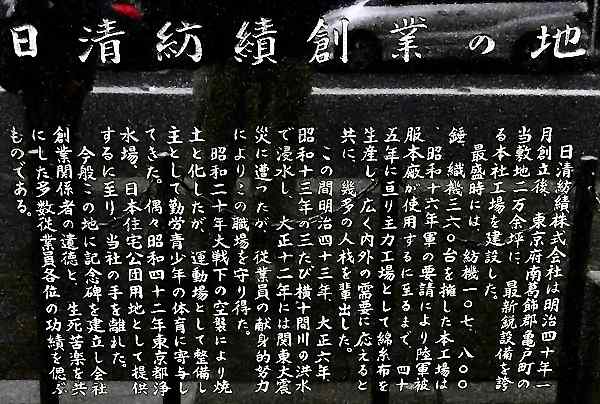 日清紡績創業の地
日清紡績株式会社は明治四十年一
月創立後、東京府南葛飾郡亀戸町の
当敷地二万余坪に、最新鋭設備を誇
る本社工場を建設した。
最盛時には、紡機一〇七、八〇〇
錘、織機三六〇台を擁した本工場は
昭和十六年軍の要請により陸軍被
服本廠が使用するに至るまで、四十
五年に亘り主力工場として綿糸布を
生産し、広く内外の需要に応えると
共に、幾多の人材を輩出した。
この間明治四十三年、大正六年、
昭和十三年の三たび横十間川の洪水
で浸水し、大正十二年には関東大震
災に遭つたが、従業員の献身的努力
によりこの職場を守り得た。
昭和二十年大戦下の空襲により焼
土と化したが、運動場として整備し
主として勤労青少年の体育に寄与し
てきた。偶々昭和四十二年東京都浄
水場、日本住宅公団用地として提供
するに至り、当社の手を離れた。
今般この地に記念碑を建立し会社
創業関係者の遺徳と、生死苦楽を共
にした多数従業員各位の功績を偲ぶ
ものである。